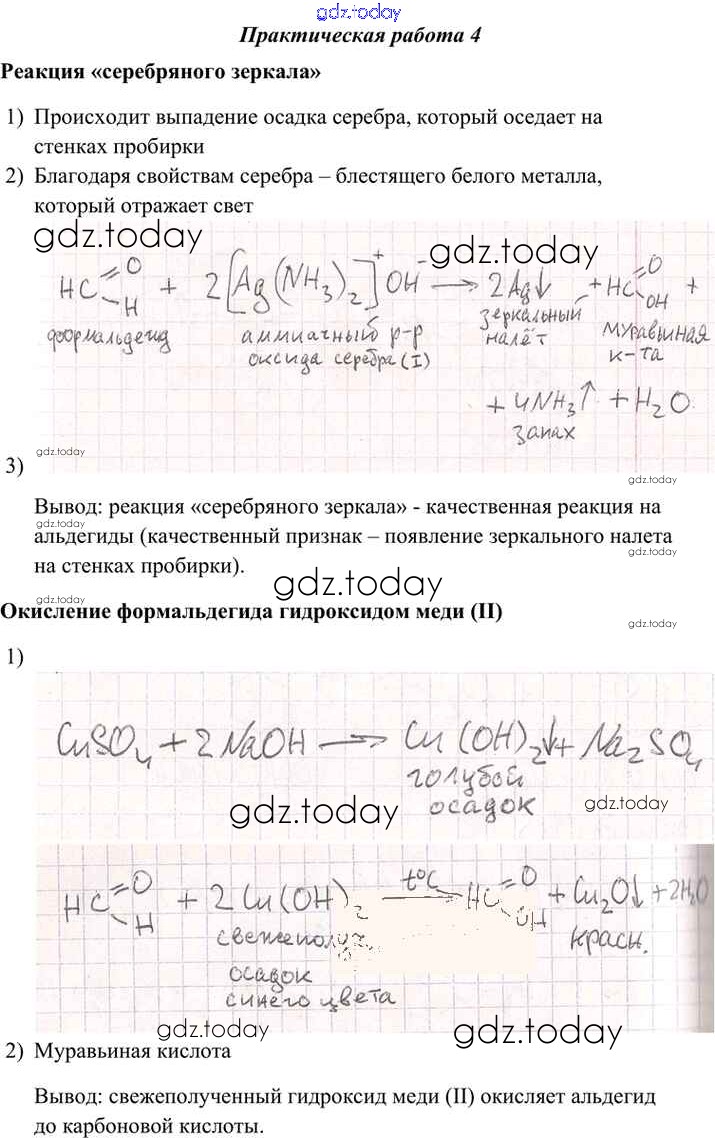 gdz.today
Практическая работа 4
Реакция «серебряного зеркала»
1) Происходит выпадение осадка серебра, который оседает на
стенках пробирки
2) Благодаря свойствам серебра – блестящего белого металла,
который отражает свет
gdz.today
gdz.today
HC=O H + 2[Ag(NH3)2]+OH– → 2Ag↓ + HC=O OH +
формальдегид аммиачный р-р зеркальный муравьиная
оксида серебра (I) налёт к-та
+ 4NH3↑ + H2O
запах
gdz.today
gdz.today
3)
Вывод: реакция «серебряного зеркала» - качественная реакция на
gdz.today
альдегиды (качественный признак – появление зеркального налета
gdz.today
на стенках пробирки).
gdz.today
gdz.today
Окисление формальдегида гидроксидом меди (II)
gdz.today
1)
CuSO4 + 2NaOH → Cu(OH)2↓ + Na2SO4
голубой
осадок
gdz.today
gdz.today
HC=O H + 2Cu(OH)2 t°C → HC=O OH + Cu2O↓ + 2H2O
свежеполуч. красн.
осадок
синего цвета
gdz.today
gdz.today
2) Муравьиная кислота
Вывод: свежеполученный гидроксид меди (II) окисляет альдегид
до карбоновой кислоты.